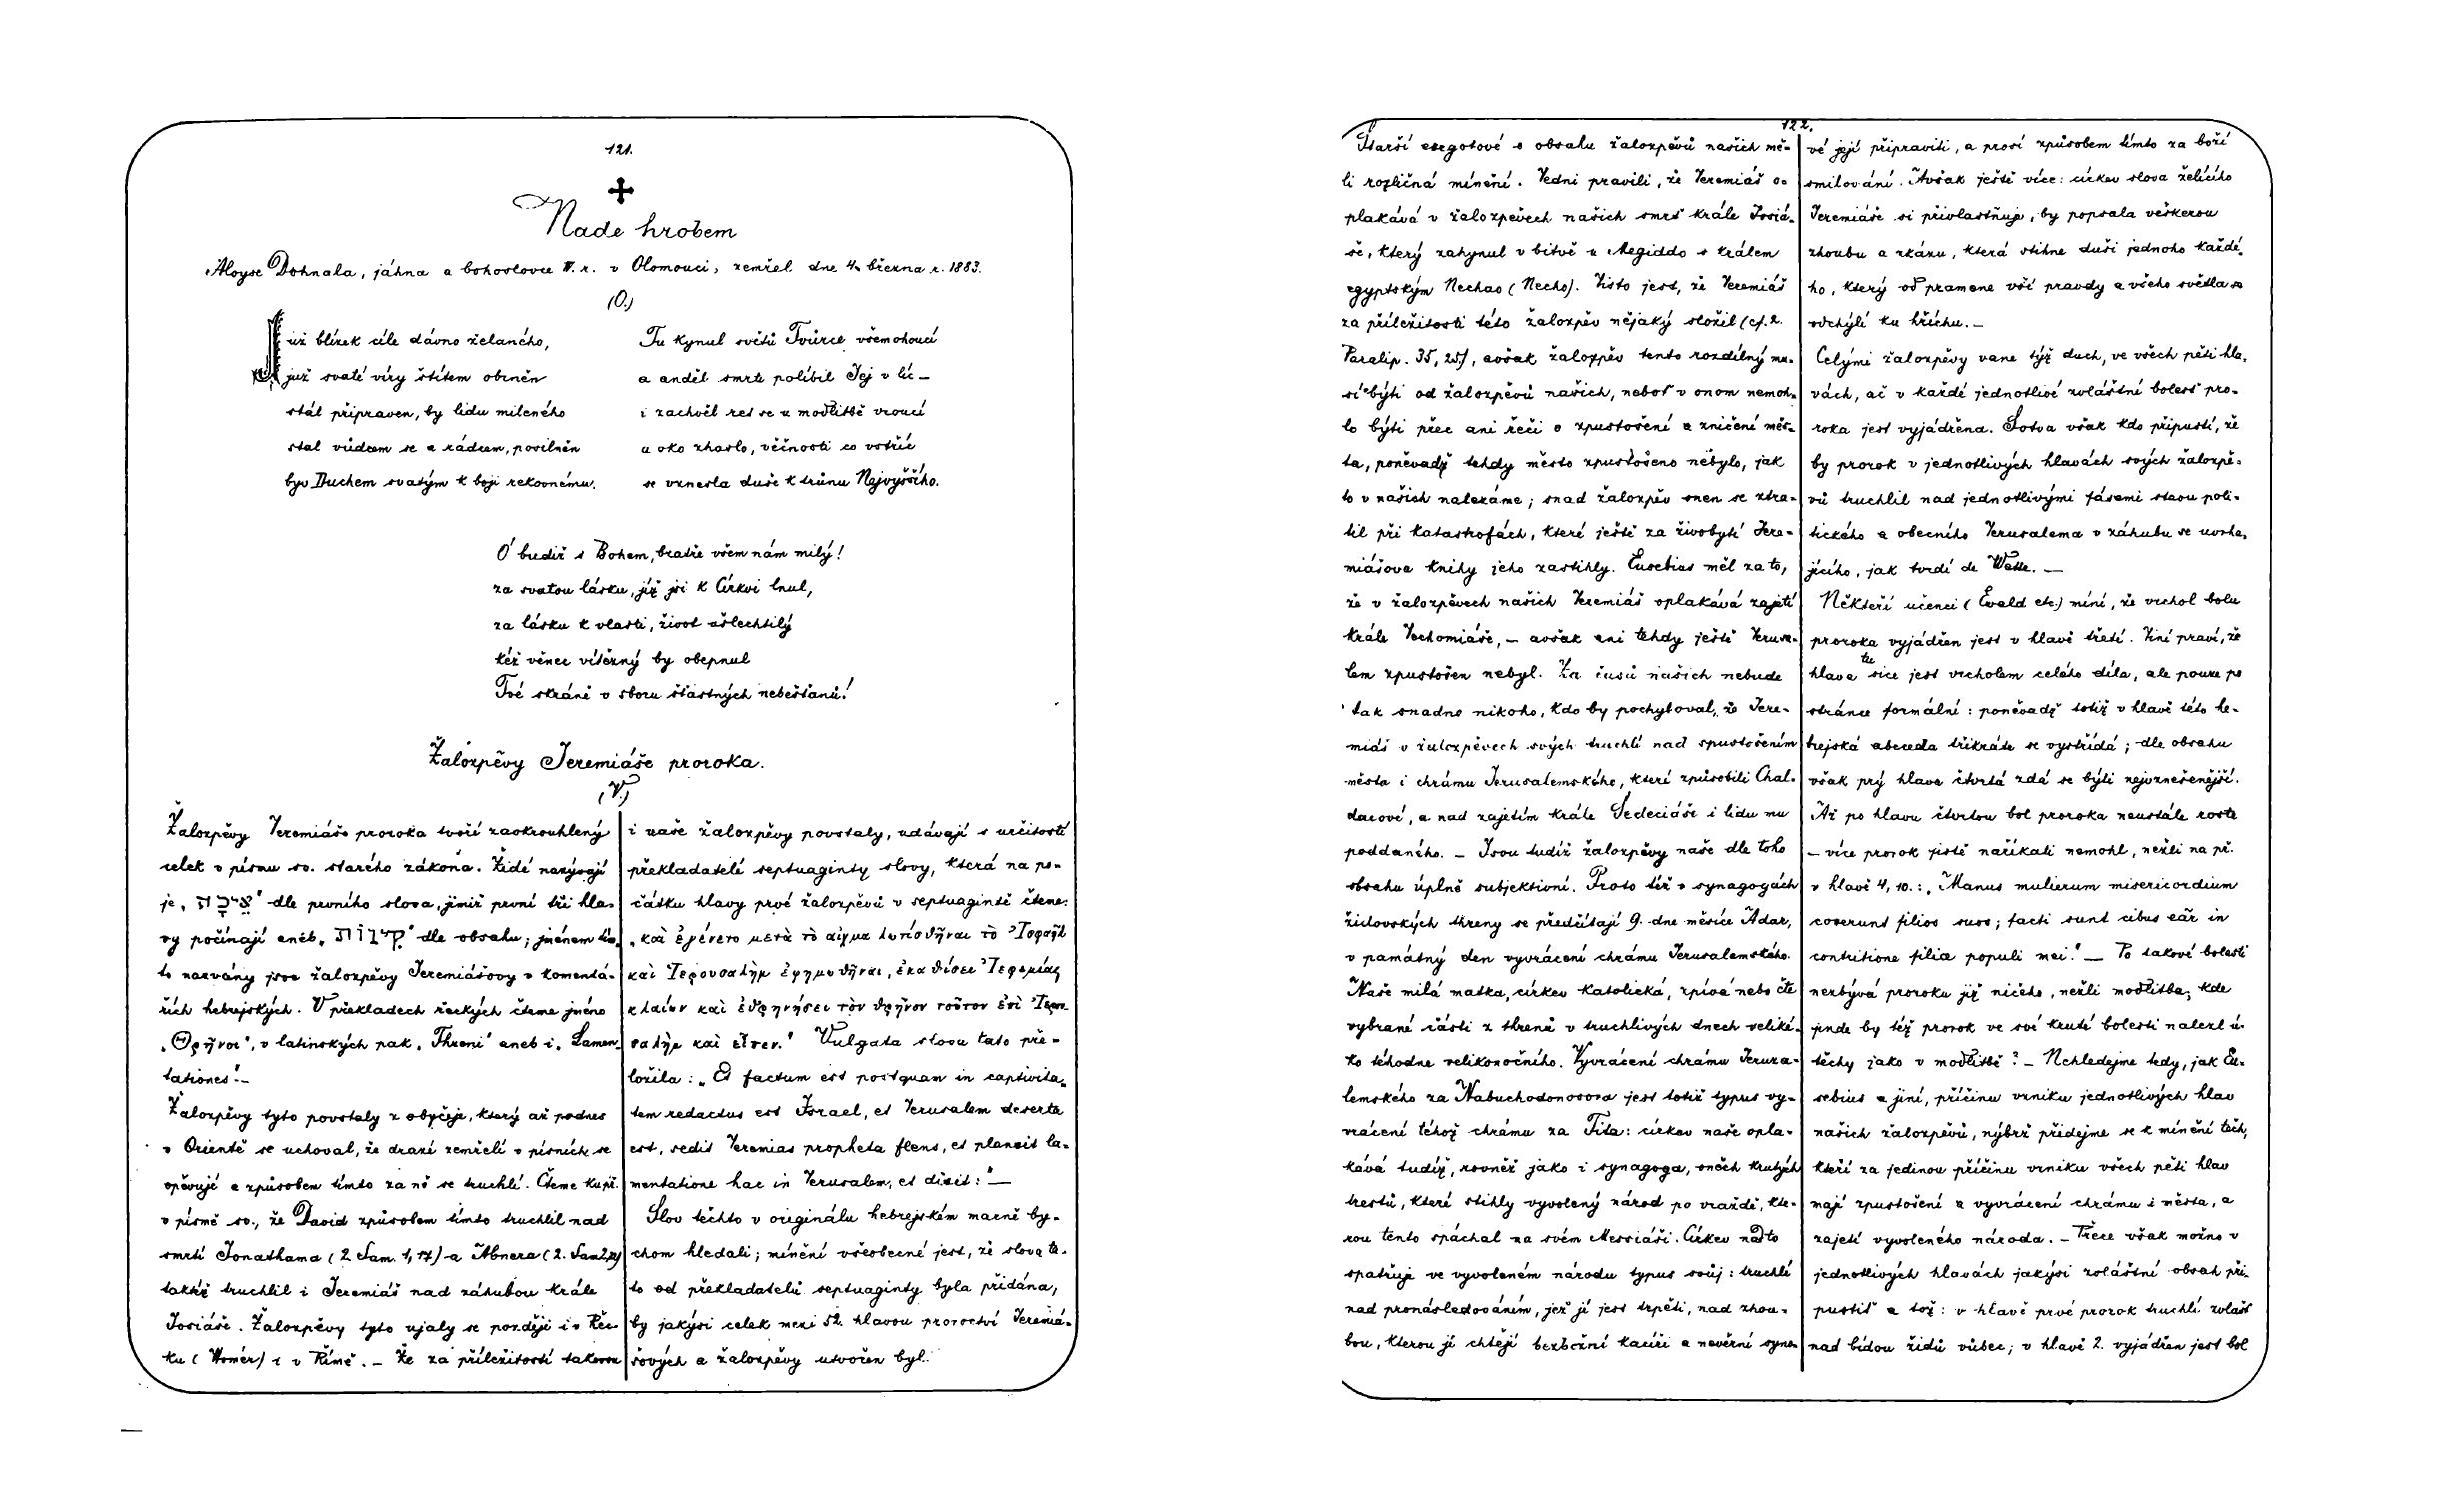 121.
Nade hrobem
Aloyse Dohnala, jáhna a bohoslovce IV. r. v Olomouci, zemřel dne 4. března r. 1883.
(O.)
Již blízek cíle dávno želaného,
již svaté víry štítem obrněn
stál připraven, by lidu milenému
stal vůdcem se a rádcem, posilněn
byv Duchem svatým k boji rekovnému.
Tu kynul světů Tvůrce všemohoucí
a anděl smrti políbil Jej v líc –
i zachvěl ret se u modlitbě vroucí
a oko zhaslo, věčnosti co vstříc
se vznesla duše k trůnu Nejvyššího.
Ó budiž s Bohem, bratře všem nám milý!
za svatou lásku, jíž jsi k Církvi lnul,
za lásku k vlasti, život ušlechtilý
též věnec vítězný by obepnul
Tvé skráně v sboru šťastných nebešťanů!
Žalozpěvy Jeremiáše proroka.
(V.)
Žalozpěvy Jeremiáše proroka tvoří zaokrouhlený
celek v písmu sv. starého zákona. Židé nazývají
je „אֵיכָה“ dle prvního slova, jímiž první tři hla-
vy počínají aneb „קינות“ dle obsahu; jménem tím-
to nazvány jsou žalozpěvy Jeremiášovy v komentá-
řích hebrejských. V překladech řeckých čteme jméno
„Θρῆνοι“, v latinských pak „Threni“ aneb i „Lamen-
tationes“. –
Žalozpěvy tyto povstaly z obyčeje, který až podnes
v Orientě se uchoval, že drazí zemřelí v písních se
opěvují a způsobem tímto za ně se truchlí. Čteme ku př.
v písmě sv., že David způsobem tímto truchlil nad
smrtí Jonathama (2 Sam. 1, 17) a Abnera (2. Sam
taktéž truchlil i Jeremiáš nad záhubou krále
Josiáše. Žalozpěvy tyto ujaly se později i v Řec-
ku (Homér) i v Římě. – Že za příležitosti takovou
i naše žalozpěvy povstaly, udávají s určitostí
překladatelé septuaginty slovy, která na po-
čátku hlavy prvé žalozpěvů v septuagintě čteme:
„καὶ ἐγένετο μετὰ τὸ αἰχμα λωτισθῆναι τὸ Ἰσραὴλ
καὶ Ἱερουσαλὴμ ἐρημωθῆναι, ἐκάθισεν Ἱερεμίας
κλαίων καὶ ἐθρηνήσει τὸν θρῆνον τοῦτον ἐπὶ Ἱερου-
σαλὴμ καὶ εἶπεν.“ Vulgata slova tato pře-
ložila: „Et factum est postquam in captivita-
tem redactus est Israel, et Jerusalem deserta
est, sedit Jeremias propheta flens, et planxit la-
mentatione hac in Jerusalem, et dixit:“ –
Slov těchto v originálu hebrejském marně by-
chom hledali; mínění všeobecné jest, že slova ta-
to od překladatelů septuaginty byla přidána,
by jakýsi celek mezi 52. hlavou proroctví Jeremiá-
šových a žalozpěvy utvořen byl.
122.
Starší exegetové o obsahu žalozpěvů našich mě-
li rozličná mínění. Jedni pravili, že Jeremiáš o-
plakává v žalozpěvech našich smrť krále Josiá-
še, který zahynul v bitvě u Megiddo s králem
egyptským Nechao (Necho). Jisto jest, že Jeremiáš
za příležitosti této žalozpěv nějaký složil (cf. 2.
Paralip. 35, 25), avšak žalozpěv tento rozdílný mu-
sí býti od žalozpěvů našich, neboť v onom nemoh-
lo býti přec ani řeči o zpustošení a zničení měs-
ta, poněvadž tehdy město zpustošeno nebylo, jak
to v našich nalezáme; snad žalozpěv onen se ztra-
til při katastrofách, které ještě za živobytí Jere-
miášova knihy jeho zastihly. Eusebius měl za to,
že v žalozpěvech našich Jeremiáš oplakává zajetí
krále Jechoniáše, – avšak ani tehdy ještě Jerusa-
lem zpustošen nebyl. Za časů našich nebude
tak snadno nikoho, kdo by pochyboval, že Jere-
miáš v žalozpěvech svých truchlí nad spustošením
města i chrámu Jerusalemského, které způsobili Chal-
daeové, a nad zajetím krále Sedeciáše i lidu mu
poddaného. – Jsou tudíž žalozpěvy naše dle toho
obsahu úplně subjektivní. Proto též v synagogách
židovských threny se předčítají 9. dne měsíce Adar,
v památný den vyvrácení chrámu Jerusalemského.
Naše milá matka, církev katolická, zpívá nebo čte
vybrané části z threnů v truchlivých dnech veliké-
ho téhodne velikonočního. Vyvrácení chrámu Jeruza-
lemského za Nabuchodonosora jest totiž typus vy-
vrácení téhož chrámu za Tita: církev naše opla-
kává tudíž, rovněž jako i synagoga, oněch krutých
trestů, které stihly vyvolený národ po vraždě, kte-
rou tento spáchal na svém Messiáši. Církev nadto
spatřuje ve vyvoleném národu typus svůj: truchlí
nad pronásledováním, jež jí jest trpěti, nad zhou-
bou, kterou jí chtějí bezbožní kacíři a nevěrní syno-
vé její připraviti, a prosí způsobem tímto za boží
smilování. Avšak ještě více: církev slova želícího
Jeremiáše si přivlastňuje, by popsala veškerou
zhoubu a zkázu, která stihne duši jednoho každé-
ho, který od pramene vší pravdy a všeho světla se
odchýlí ku hříchu. –
Celými žalozpěvy vane týž duch, ve všech pěti hla-
vách, ač v každé jednotlivé zvláštní bolest pro-
roka jest vyjádřena. Sotva však kdo připustí, že
by prorok v jednotlivých hlavách svých žalozpě-
vů truchlil nad jednotlivými fásemi stavu poli-
tického a obecního Jerusalema v záhubu se uvrha-
jícího, jak tvrdí de Wette. –
Někteří učenci (Ewald etc.) míní, že vrchol bolu
proroka vyjádřen jest v hlavě třetí. Jiní praví, že
hlava tu sice jest vrcholem celého díla, ale pouze po
stránce formální: poněvadž totiž v hlavě této he-
brejská abeceda třikráte se vystřídá; dle obsahu
však prý hlava čtvrtá zdá se býti nejvznešenější.
Až po hlavu čtvrtou bol proroka neustále roste
– více prorok jistě naříkati nemohl, nežli na př.
v hlavě 4, 10.: „Manus mulierum misericordium
coxerunt filios suos; facti sunt cibus eār in
contritione filiæ populi mei“. – Po takové bolesti
nezbývá proroku již ničeho, nežli modlitba; kde
jinde by též prorok ve své kruté bolesti nalezl ú-
těchy jako v modlitbě? – Nehledejme tedy, jak Eu-
sebius a jiní, příčinu vzniku jednotlivých hlav
našich žalozpěvů, nýbrž přidejme se k mínění těch,
kteří za jedinou příčinu vzniku všech pěti hlav
mají zpustošení a vyvrácení chrámu i města, a
zajetí vyvoleného národa. – Přece však možno v
jednotlivých hlavách jakýsi zvláštní obsah při-
pustiť a tož: v hlavě prvé prorok truchlí zvlášť
nad bídou židů vůbec; v hlavě 2. vyjádřen jest bol